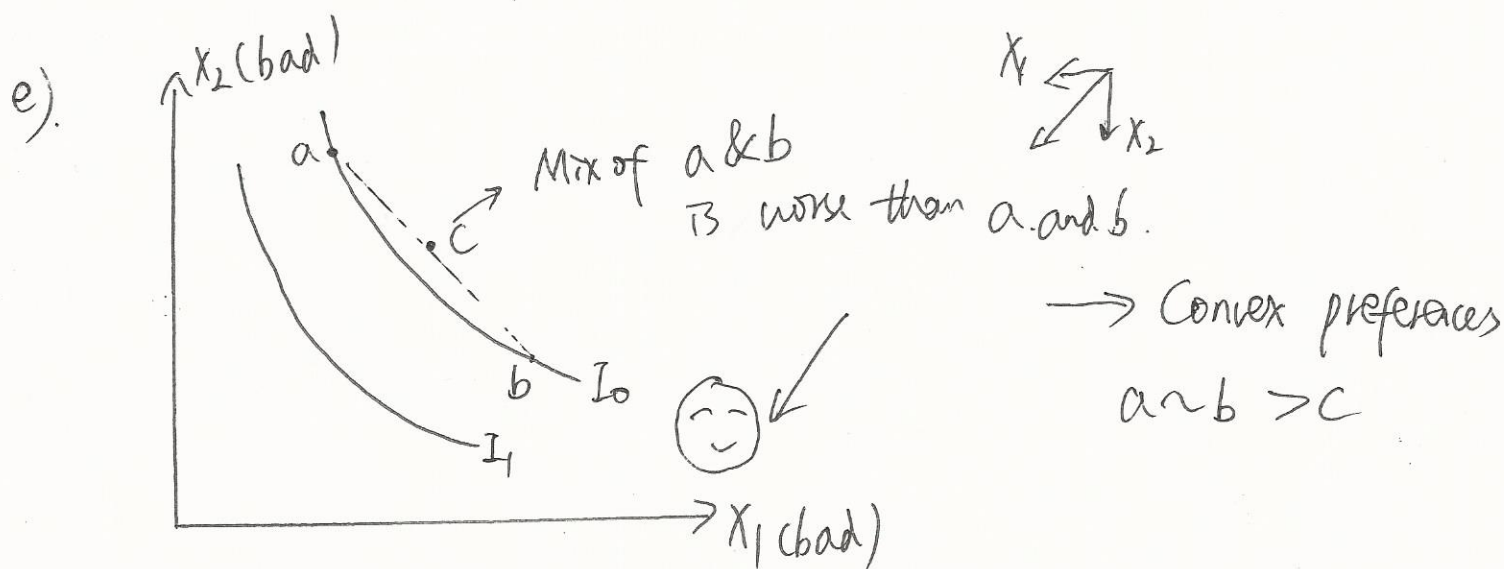 e).
X₂ (bad)
X₁
X₂
a
Mix of a & b
is worse than a. and b.
C
→ Convex preferences
a ~ b > C
b
I₀
I₁
X₁ (bad)